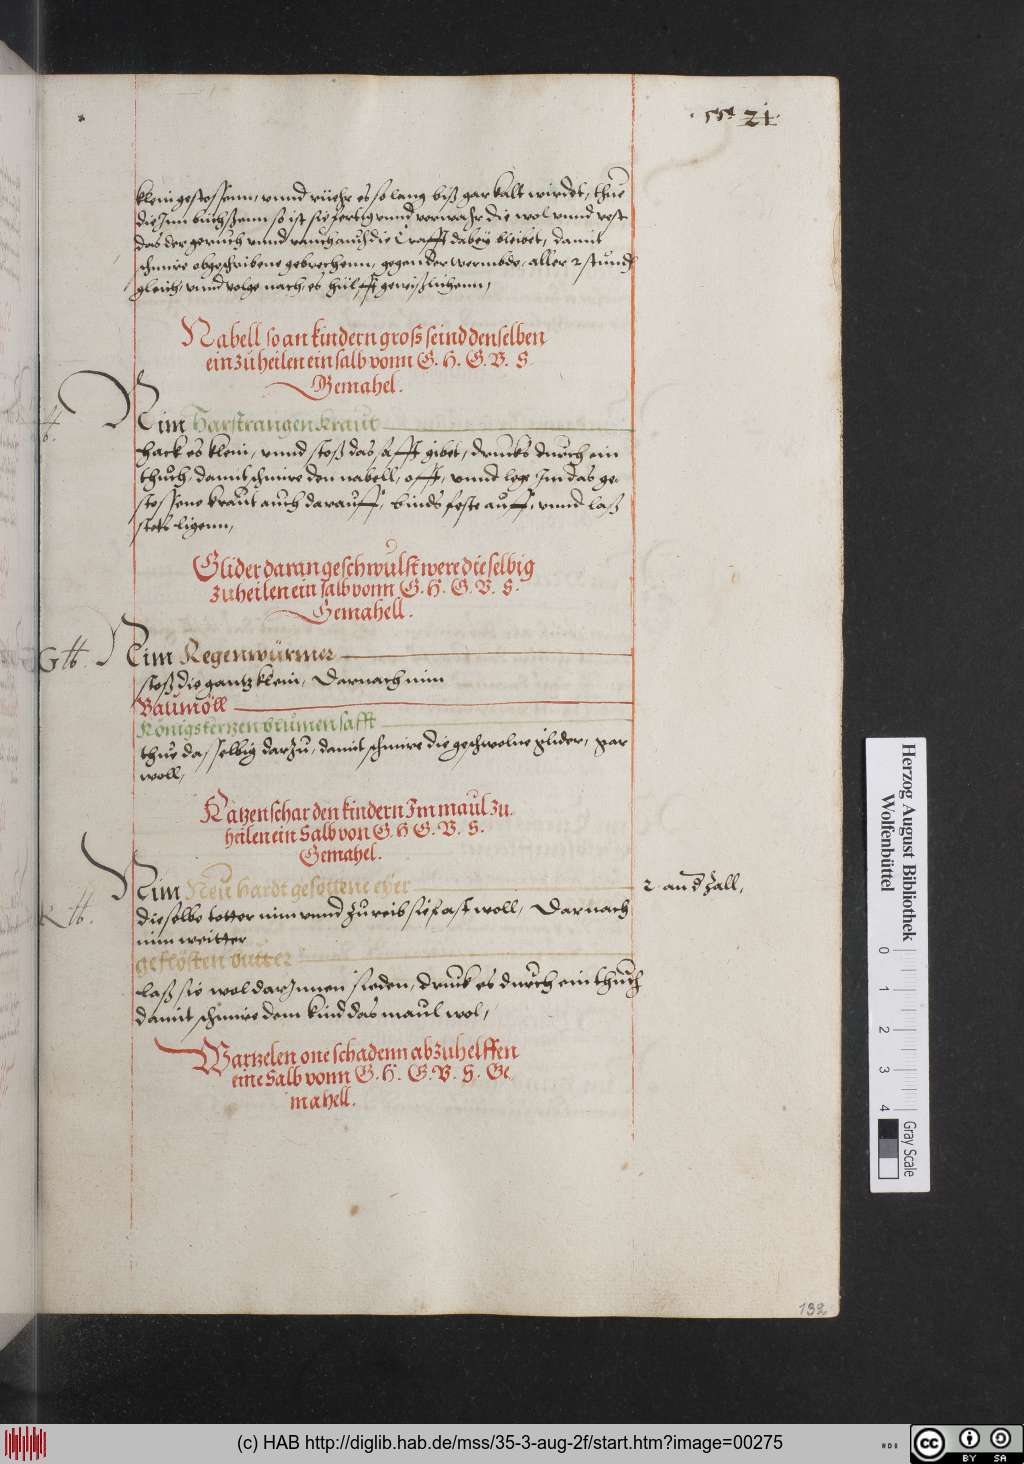 21
klein gestossenn, vnnd rüehr es so lang biß gar kalt wirdet, thue
die Inn büchßenn so ist sie fertig vnnd verwahr die wol vnnd vest
das der geruch vnnd auch die Crafft dabey bleibet, damit
schmire obgeschribene gebrechenn, gegen der wermbde, aller 2 stundt
gleich, vnnd volge nach, es hülfft gewißlichenn,
Nabell so an kindern groß seind denselben
ein zu heilen ein salb vonn G. H. G. V. S.
Gemahel.
Nim Harstrangen kraut
hack es klein, vnnd stoß das safft gibet, druks durch ein
thuch, damit schmire den nabell, offt, vnnd lege Im das ge,
stossene kraut auch darauff, binds feste auff, vnnd laß
stets ligenn,
Glider daran geschwulst were dieselbig
zu heilen ein salb vonn G. H. G. V. S.
Gemahell.
Nim Regenwürmer
stoß die gantz klein, Darnach nim
Baumöll
Königskerzen blumen safft
thue dasselbig darzu, damit schmire die geschwolne glider, gar
woll,
Katzenschar den kindern Im maul zu
heilen ein Salb von G. H G. V. S.
Gemahel.
Nim Neu hardt gesottene eyer 2 an d Zall,
dieselbe totter nim vnnd zureib sie fast woll, Darnach
nim weitter
geflösten butter
laß sie wol darInnen sieden, druck es durch ein thuch
damit schmire dem kind das maul wol,
Wartzelen one schadenn abzuhelffen
eine Salb vonn G. H. G. V. S. Ge
mahell.
132
Herzog August Bibliothek
Wolfenbüttel
0 1 2 3 4
Gray Scale
(c) HAB http://diglib.hab.de/mss/35-3-aug-2f/start.htm?image=00275
cc BY SA